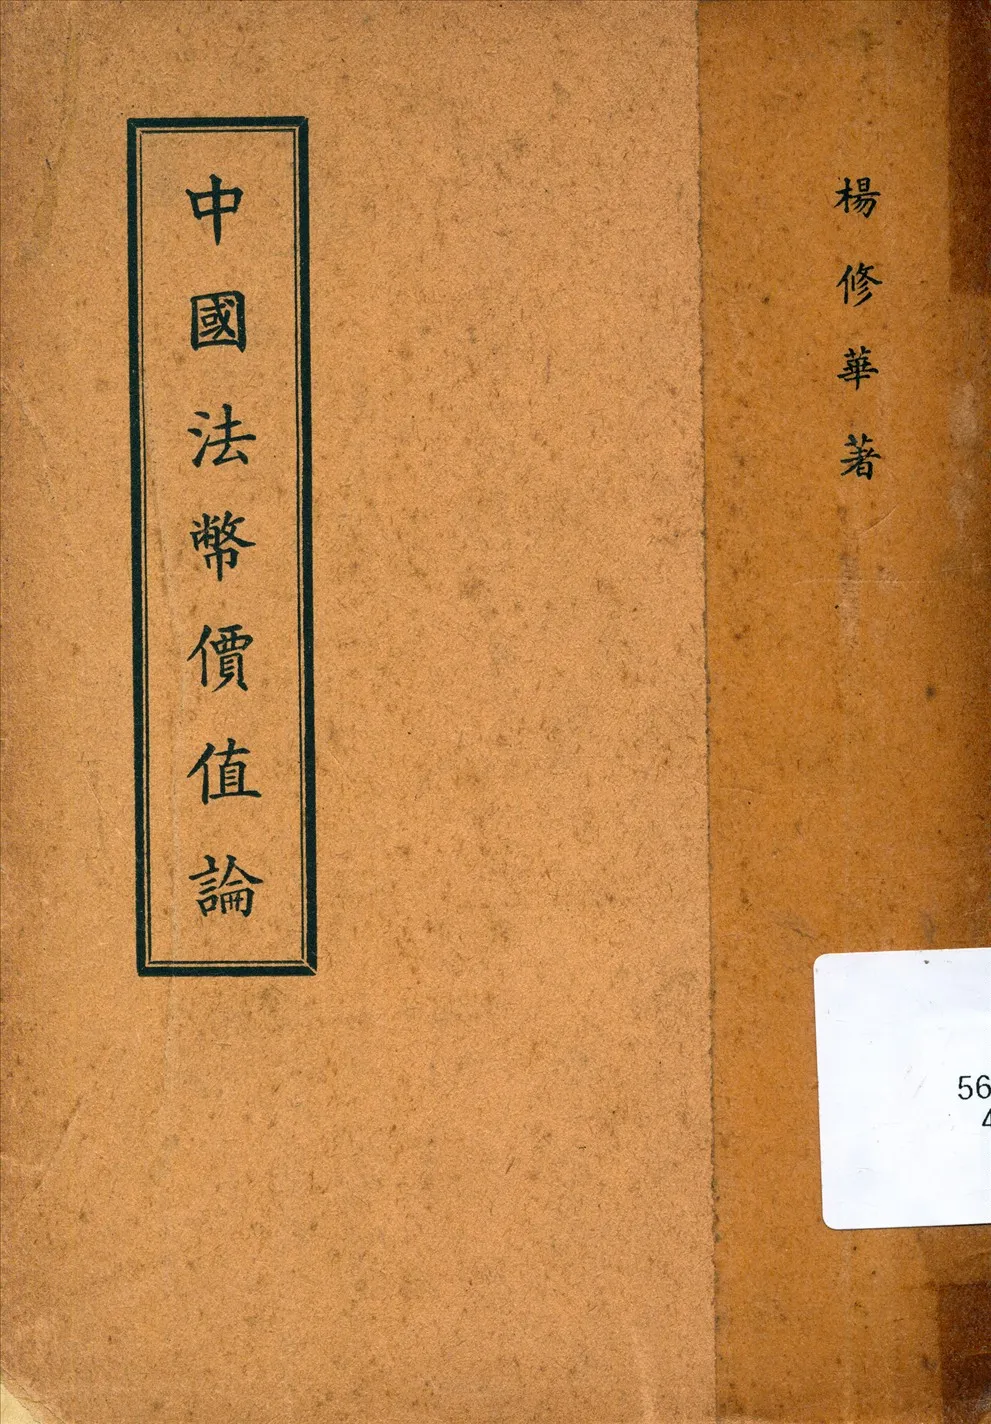 楊修華著
中國法幣價值論
56
4